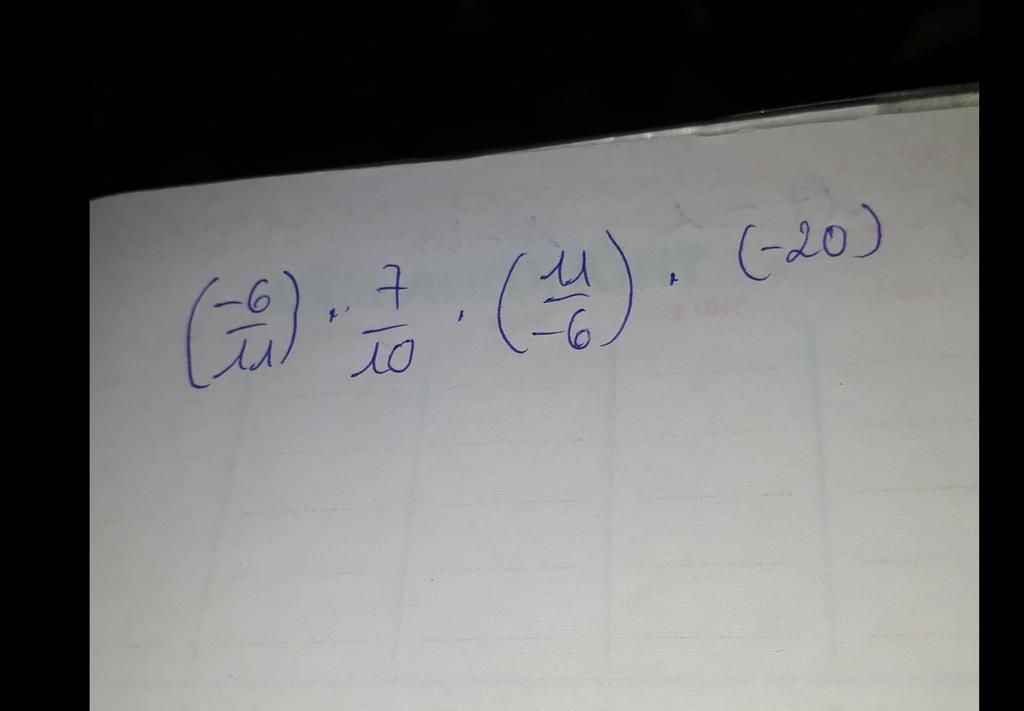 (-6/11) · 7/10 · (11/-6) · (-20)